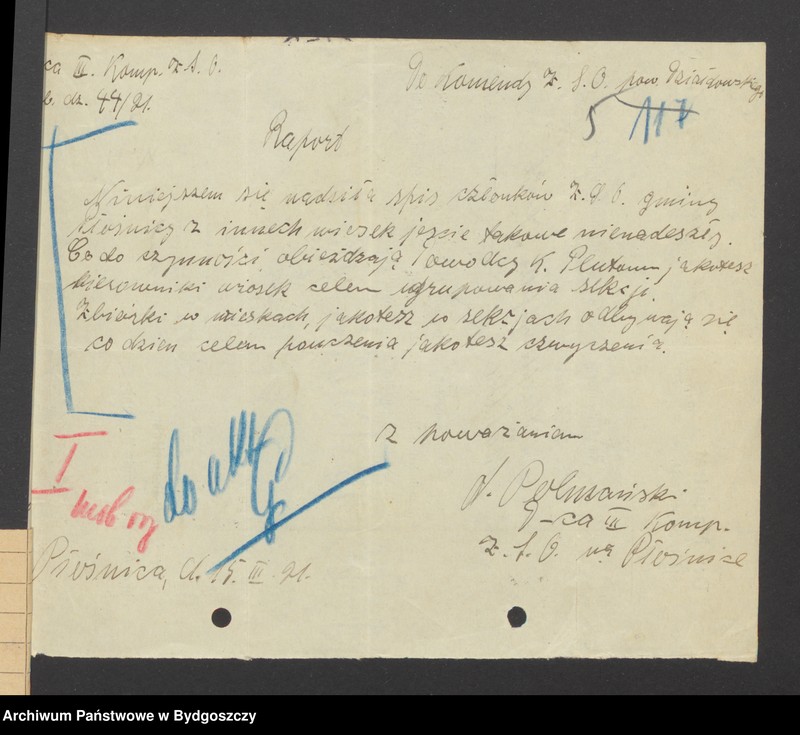 ca III. Komp. Z. S. O.
dz. 44/21.
Do Komendy Z. S. O. pow. Działdowskiego
5 117
Raport
Niniejszem się nadsiła spis członków Z.S.O. gminy
Płośnicy z innech wiosek jescie takowe nienadeszły.
Co do czynności, obieżdzają Dowodcy K. Plutonu jakotesz
kierowniki wiosek celem ugrupowania sekcji.
Zbiórki w wioskach, jakotesz w sekcjach odbywają się
co dzien celem pouczenia jakotesz czwyczenia.
z poważaniem
do akt
I
mob
D-ca III Komp.
Z. S. O. na Płośnice
Płośnica, d. 15. III. 21.
Archiwum Państwowe w Bydgoszczy